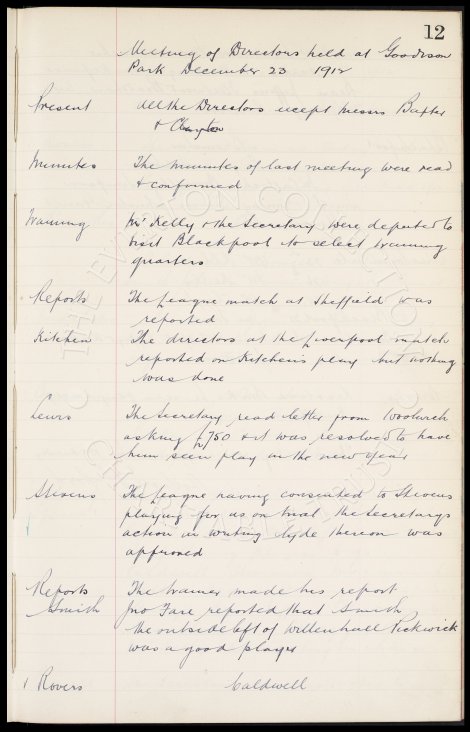 12
Meeting of Directors held at Goodison
Park December 23 1912
Present All the Directors except Messrs Baxter
& Clayton
Minutes The minutes of last meeting were read
& confirmed
Training Mr Kelly & the Secretary were deputed to
visit Blackpool to select training
quarters
Reports The League match at Sheffield was
reported
Kitchen The directors at the Liverpool match
reported on Kitchen's play but nothing
was done
Lewis The Secretary read letter from Woolwich
asking £750 & it was resolved to have
him seen play in the new year
Stevens The League having consented to Stevens
playing for us on trial the Secretary's
action in writing Clyde thereon was
approved
Reports The trainer made his report
Smith Jno Fare reported that Smith
the outside left of Willenhall Pickwick
was a good player
Rovers Caldwell
THE EVERTON COLLECTION